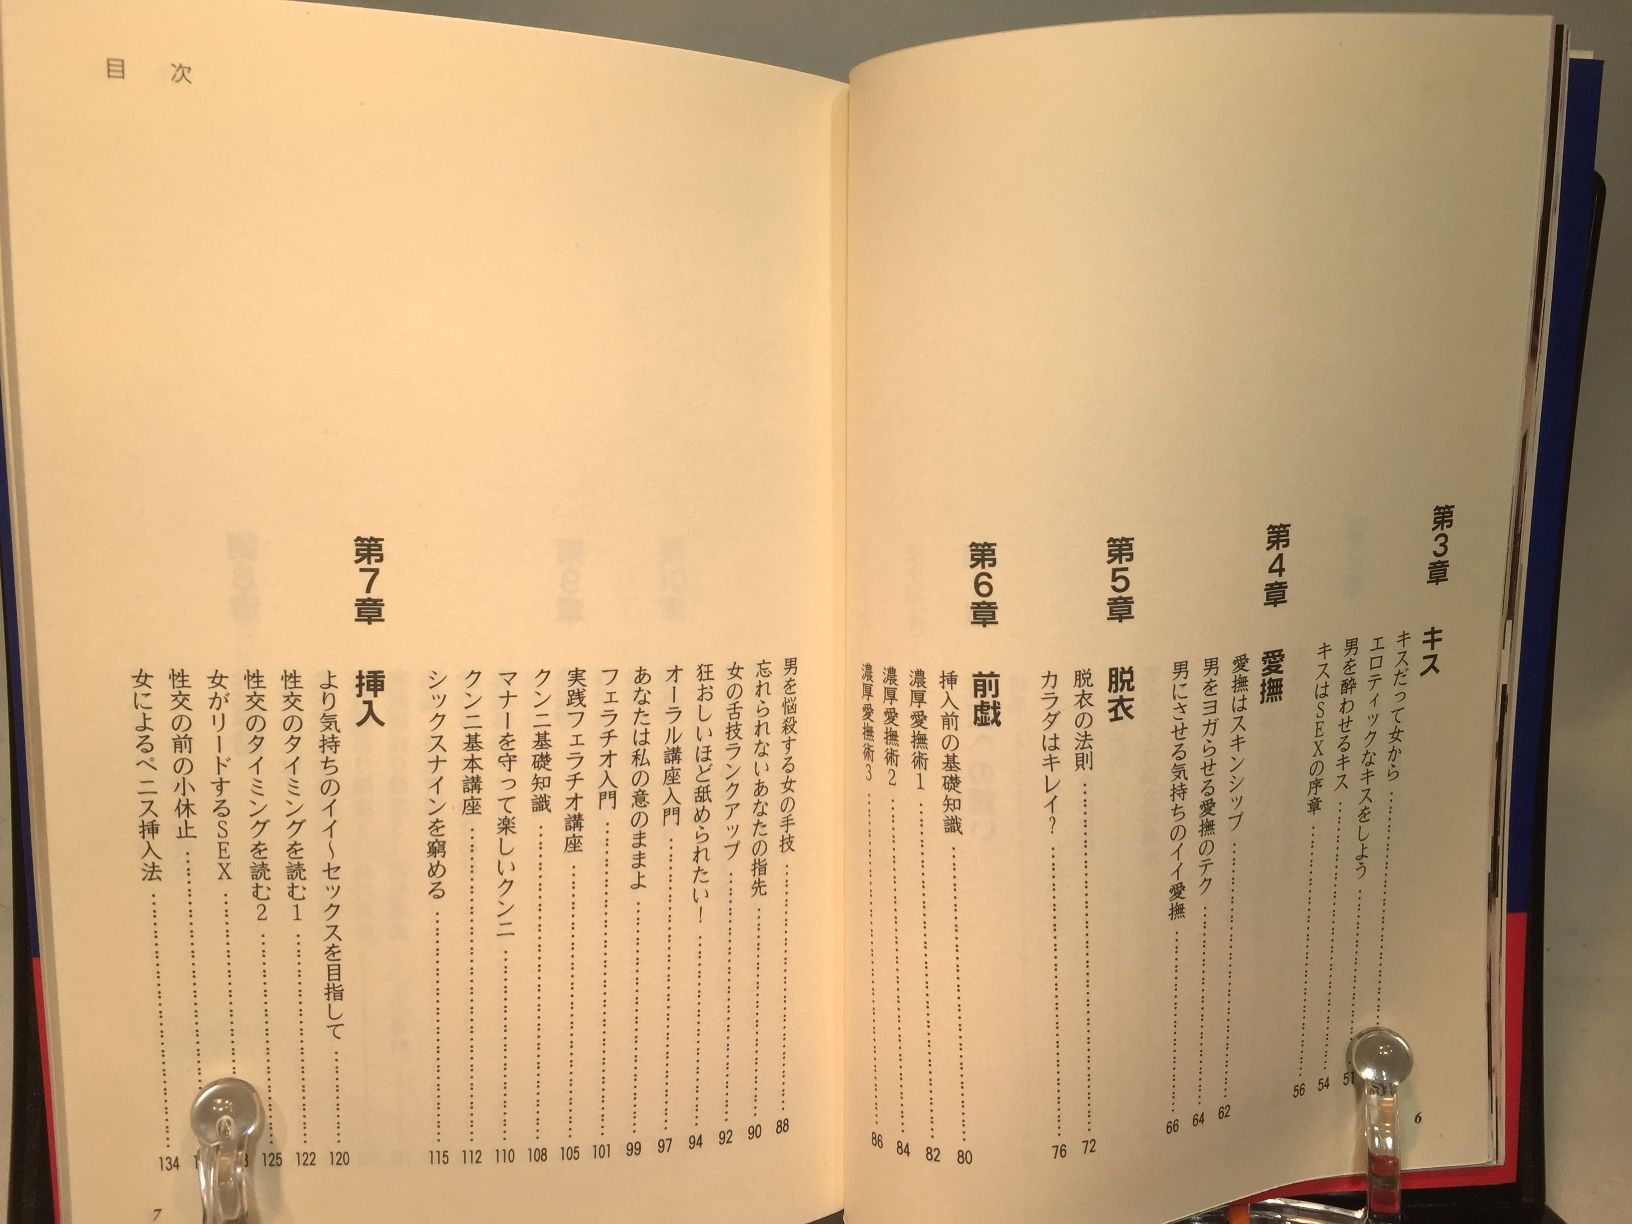 第3章 キス
キスだって女から
エロティックなキスをしよう 51
男を酔わせるキス 54
キスはSEXの序章 56
第4章 愛撫
愛撫はスキンシップ 62
男をヨガらせる愛撫のテク 64
男にさせる気持ちのイイ愛撫 66
第5章 脱衣
脱衣の法則 72
カラダはキレイ? 76
第6章 前戯
挿入前の基礎知識 80
濃厚愛撫術1 82
濃厚愛撫術2 84
濃厚愛撫術3 86
6
目次
男を悩殺する女の手技 88
忘れられないあなたの指先 90
女の舌技ランクアップ 92
狂おしいほど舐められたい! 94
オーラル講座入門 97
あなたは私の意のままよ 99
フェラチオ入門 101
実践フェラチオ講座 105
クンニ基礎知識 108
マナーを守って楽しいクンニ 110
クンニ基本講座 112
シックスナインを窮める 115
第7章 挿入
より気持ちのイイ〜セックスを目指して 120
性交のタイミングを読む1 122
性交のタイミングを読む2 125
女がリードするSEX
性交の前の小休止
女によるペニス挿入法 134
7